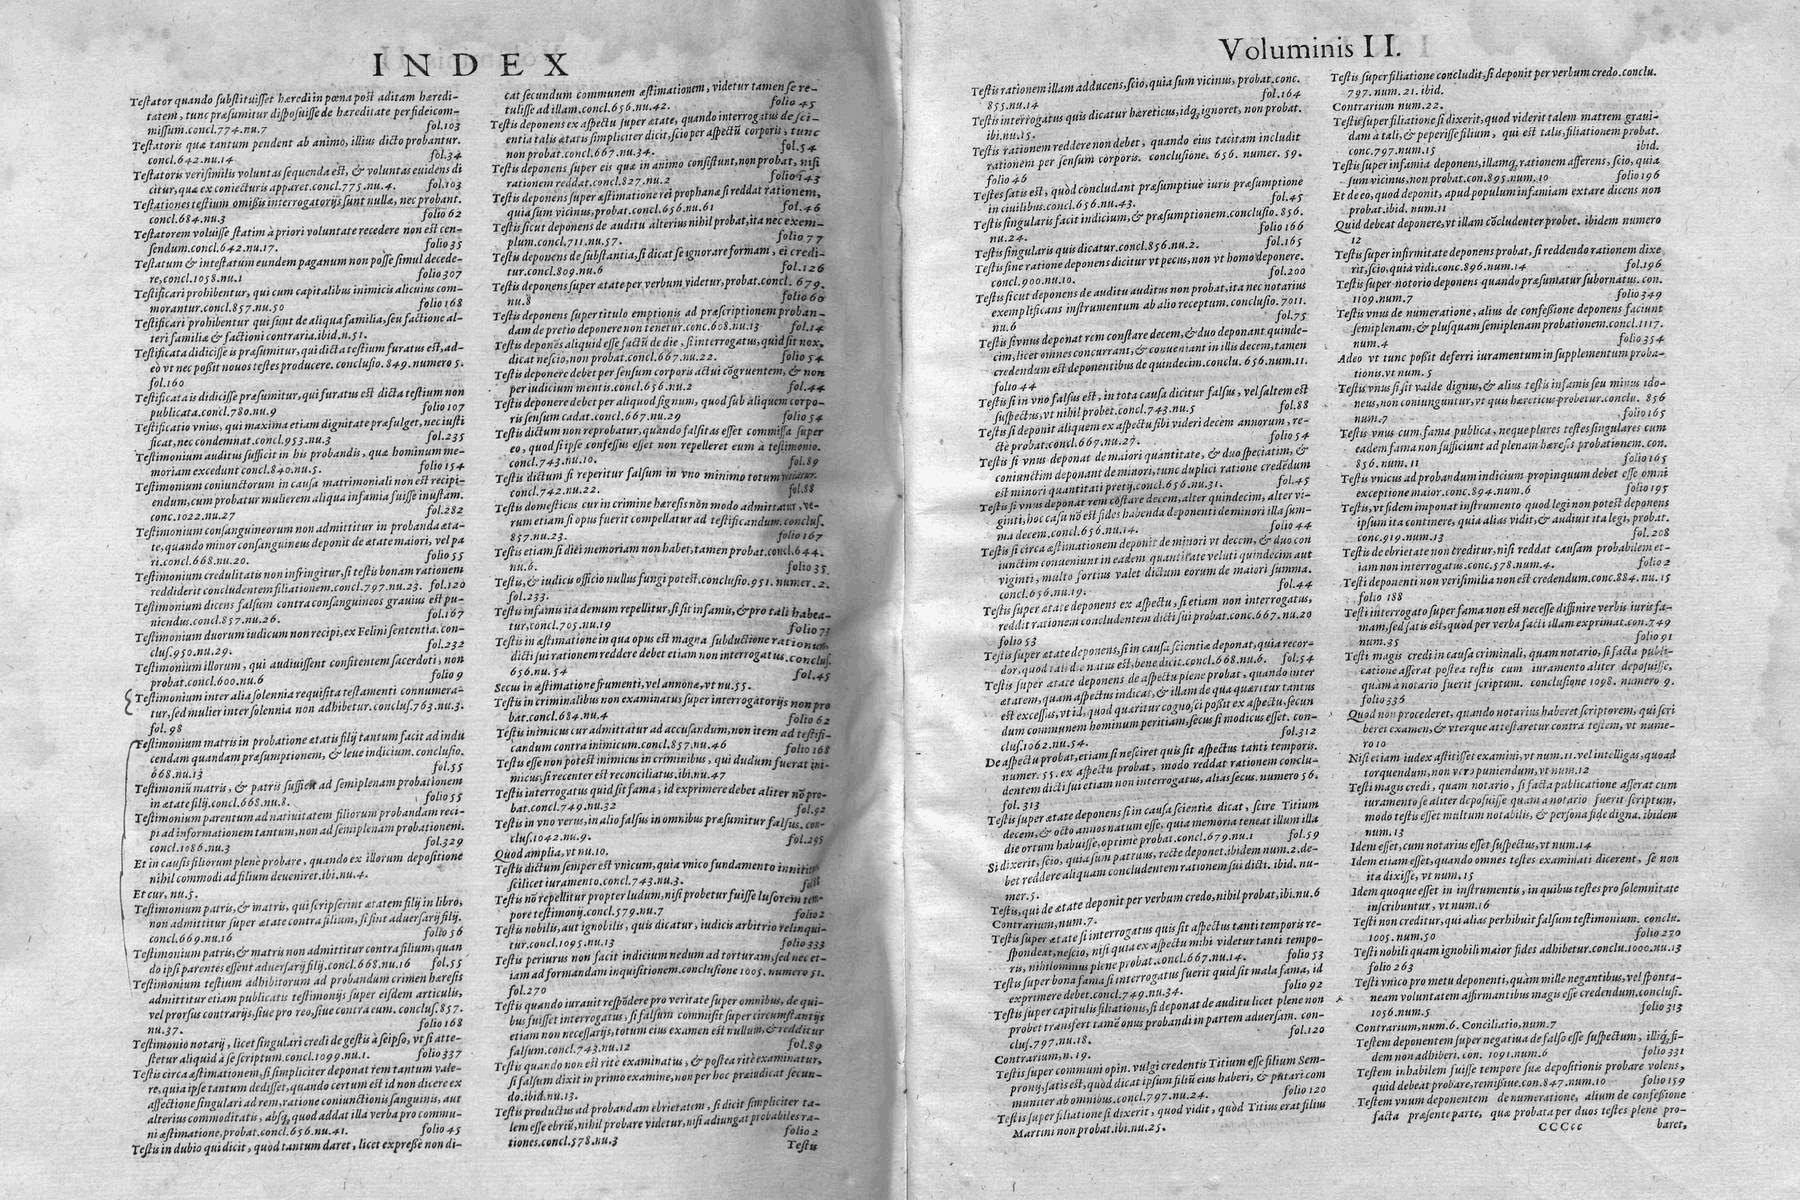 INDEX
Testator quando substituisset hæredi in pœna post aditam hæredi-
tatem, tunc præsumitur disposuisse de hæreditate per fideicom-
missum.concl.774.nu.7 fol.103
Testatoris quæ tantum pendent ab animo, illius dicto probantur.
concl.642.nu.14 fol.34
Testatoris verisimilis voluntas sequenda est, & voluntas euidens di
citur, quæ ex coniecturis apparet.concl.775.nu.4. fol.103
Testationes testium omissis interrogatorijs sunt nullæ, nec probant.
concl.684.nu.3 folio 62
Testatorem voluisse statim à priori voluntate recedere non est cen-
sendum.concl.642.nu.17. folio 35
Testatum & intestatum eundem paganum non posse simul decede-
re, concl.1058.nu.1 folio 307
Testificari prohibentur, qui cum capitalibus inimicis alicuius com-
morantur.concl.857.nu.50 folio 168
Testificari prohibentur qui sunt de aliqua familia, seu factione al-
teri familiæ & factioni contraria.ibid.n.51.
Testificata didicisse is præsumitur, qui dicta testium furatus est, ad-
eò vt nec possit nouos testes producere. conclusio. 849. numero 5.
fol.160
Testificata is didicisse præsumitur, qui furatus est dicta testium non
publicata.concl.780.nu.9 folio 107
Testificatio vnius, qui maxima etiam dignitate præfulget, nec iusti
ficat, nec condemnat.concl.953.nu.3 fol.235
Testimonium auditus sufficit in his probandis, quæ hominum me-
moriam excedunt concl.840.nu.5. folio 154
Testimonium coniunctorum in causa matrimoniali non est recipi-
endum, cum probatur mulierem aliqua infamia fuisse inustam.
conc.1022.nu.27 fol.282
Testimonium consanguineorum non admittitur in probanda æta-
te, quando minor consanguineus deponit de ætate maiori, vel pa
ri.concl.668.nu.20. folio 55
Testimonium credulitatis non infringitur, si testis bonam rationem
reddiderit concludentem filiationem.concl.797.nu.23. fol.120
Testimonium dicens falsum contra consanguineos grauius est pu-
niendus.concl.857.nu.26. fol.167
Testimonium duorum iudicum non recipi, ex Felini sententia. con-
clus.950.nu.29. fol.232
Testimonium illorum, qui audiuissent confitentem sacerdoti, non
probat.concl.600.nu.6 folio 9
Testimonium inter alia solennia requisita testamenti connumera-
tur, sed mulier inter solennia non adhibetur.conclus.763.nu.3.
fol. 98
Testimonium matris in probatione ætatis filij tantum facit ad indu
cendam quandam præsumptionem, & leue indicium. conclusio.
668.nu.13 fol.55
Testimoniū matris, & patris sufficit ad semiplenam probationem
in ætate filij.concl.668.nu.8. folio 55
Testimonium parentum ad natiuitatem filiorum probandam reci-
pi ad informationem tantum, non ad semiplenam probationem.
concl.1086.nu.3 fol.329
Et in causis filiorum plenè probare, quando ex illorum depositione
nihil commodi ad filium deueniret.ibi.nu.4.
Et cur, nu.5.
Testimonium patris, & matris, qui scripserint ætatem filij in libro,
non admittitur super ætate contra filium, si sint aduersarij filij.
concl.669.nu.16 folio 56
Testimonium patris, & matris non admittitur contra filium, quan
do ipsi parentes essent aduersarij filij.concl.668.nu.16 fol.55
Testimonium testium adhibitorum ad probandum crimen hæresis
admittitur etiam publicatis testimonijs super eisdem articulis,
vel prorsus contrarijs, siue pro reo, siue contra eum. conclus.857.
nu.37. folio 168
Testimonio notarij, licet singulari credi de gestis à seipso, vt si atte-
stetur aliquid à se scriptum.concl.1099.nu.1. folio 337
Testis circa æstimationem, si simpliciter deponat rem tantum vale-
re, quia ipse tantum dedisset, quando certum est id non dicere ex
affectione singulari ad rem, ratione coniunctionis sanguinis, aut
alterius commoditatis, absq, quod addat illa verba pro commu-
ni æstimatione, probat.concl.656.nu.41. folio 45
Testis in dubio qui dicit, quod tantum daret, licet expressè non di-
cat secundum communem æstimationem, videtur tamen se re-
tulisse ad illam.concl.656.nu.42. folio 45
Testis deponens ex aspectu super ætate, quando interrogatus de sci-
entia talis ætatis simpliciter dicit, scio per aspectū corporis, tunc
non probat.concl.667.nu.34. fol.54
Testis deponens super eis quæ in animo consistunt, non probat, nisi
rationem reddat.concl.827.nu.2 folio 143
Testis deponens super æstimatione rei prophanæ si reddat rationem,
quia sum vicinus, probat.concl.656.nu.61 fol.46
Testis sicut deponens de auditu alterius nihil probat, ita nec exem-
plum.concl.711.nu.57. folio 77
Testis deponens de substantia, si dicat se ignorare formam, ei credi-
tur.concl.809.nu.6 fol.126
Testis deponens super ætate per verbum videtur, probat.concl. 679.
nu.8 folio 60
Testis deponens super titulo emptionis ad præscriptionem proban-
dam de pretio deponere non tenetur.conc.608.nu.13 fol.14
Testis deponēs aliquid esse factū de die, si interrogatus, quid sit nox,
dicat nescio, non probat.concl.667.nu.22. folio 54
Testis deponere debet per sensum corporis actui cōgruentem, & non
per iudicium mentis.concl.656.nu.2 fol.44
Testis deponere debet per aliquod signum, quod sub aliquem corpo-
ris sensum cadat.concl.667.nu.29 folio 54
Testis dictum non reprobatur, quando falsitas esset commissa super
eo, quod si ipse confessus esset non repelleret eum à testimonio.
concl.743.nu.10. fol.89
Testis dictum si reperitur falsum in vno minimo totum
concl.742.nu.22. fol.88
Testis domesticus cur in crimine hæresis nōn modo admittatur, ve-
rum etiam si opus fuerit compellatur ad testificandum. conclus.
857.nu.23. folio 167
Testis etiam si diei memoriam non habet, tamen probat.concl.644.
nu.6. folio 35.
Testis, & iudicis officio nullus fungi potest.conclusio.951. numer.2.
fol.233.
Testis infamis ita demum repellitur, si sit infamis, & pro tali habea-
tur, concl.705.nu.19 folio 73
Testis in æstimatione in qua opus est magna subductione rationum,
dicti sui rationem reddere debet etiam non interrogatus.conclus.
656.nu.54 fol.45
Secus in æstimatione frumenti, vel annonæ, vt nu.55.
Testis in criminalibus non examinatus super interrogatorijs non pro
bat.concl.684.nu.4 folio 62
Testis inimicus cur admittatur ad accusandum, non item ad testifi-
candum contra inimicum.concl.857.nu.46 folio 168
Testis esse non potest inimicus in criminibus, qui dudum fuerat ini-
micus, si recenter est reconciliatus.ibi.nu.47
Testis interrogatus quid sit fama, id exprimere debet aliter nō pro-
bat.concl.749.nu.32 fol.92
Testis in vno verus, in alio falsus in omnibus præsumitur falsus. con-
clus.1042.nu.9. fol.295
Quod amplia, vt nu.10.
Testis dictum semper est vnicum, quia vnico fundamento innititur
scilicet iuramento.concl.743.nu.3.
Testis nō repellitur propter ludum, nisi probetur fuisse lusorem tem-
pore testimonij.concl.579.nu.7 folio 2
Testis nobilis, aut ignobilis, quis dicatur, iudicis arbitrio relinqui-
tur.concl.1095.nu.13 folio 333
Testis periurus non facit indicium nedum ad torturam, sed nec et-
iam ad formandam inquisitionem.conclusione 1005. numero 51.
fol.270
Testis quando iurauit respōdere pro veritate super omnibus, de qui-
bus fuisset interrogatus, si falsum commisit super circumstantijs
etiam non necessarijs, totum eius examen est nullum, & redditur
falsum.concl.743.nu.12 fol.89
Testis quando non est ritè examinatus, & postea ritè examinatur,
si falsum dixit in primo examine, non per hoc præiudicat secun-
do.ibid.nu.13.
Testis productus ad probandam ebrietatem, si dicit simpliciter ta-
lem esse ebriū, nihil probare videtur, nisi adiungat probabiles ra-
tiones.concl.578.nu.3 folio 2
Testis
Voluminis II.
Testis rationem illam adducens, scio, quia sum vicinus, probat.conc.
855.nu.14 fol.164
Testis interrogatus quis dicatur hæreticus, idq, ignoret, non probat.
ibi.nu.15.
Testis rationem reddere non debet, quando eius tacitam includit
rationem per sensum corporis. conclusione. 656. numer. 59.
folio 46
Testes satis est, quòd concludant præsumptiuè iuris præsumptione
in ciuilibus.concl.656.nu.43. fol.45
Testis singularis facit indicium, & præsumptionem.conclusio. 856.
nu.24. folio 166
Testis singularis quis dicatur.concl.856.nu.2. fol.165
Testis sine ratione deponens dicitur vt pecus, non vt homo deponere.
concl.900.nu.10. fol.200
Testis sicut deponens de auditu auditus non probat, ita nec notarius
exemplificans instrumentum ab alio receptum. conclusio. 7011.
nu.6 fol.75
Testis si vnus deponat rem constare decem, & duo deponant quinde-
cim, licet omnes concurrant, & conueniant in illis decem, tamen
credendum est deponentibus de quindecim.conclu. 656.nu.11.
folio 44
Testis si in vno falsus est, in tota causa dicitur falsus, vel saltem est
suspectus, vt nihil probet.concl.743.nu.5 fol.88
Testis si deponit aliquem ex aspectu sibi videri decem annorum, re-
ctè probat.concl.667.nu.27. folio 54
Testis si vnus deponat de maiori quantitate, & duo speciatim, &
coniunctim deponant de minori, tunc duplici ratione credēdum
est minori quantitati pretij.concl.656.nu.31. fol.45
Testis si vnus deponat rem cōstare decem, alter quindecim, alter vi-
ginti, hoc casu nō est fides habenda deponenti de minori illa sum-
ma decem.concl.656.nu.14. folio 44
Testis si circa æstimationem deponit de minori vt decem, & duo con
iunctim conueniunt in eadem quantitate veluti quindecim aut
viginti, multo fortius valet dictum eorum de maiori summa.
concl.656.nu.19. fol.44
Testis super ætate deponens ex aspectu, si etiam non interrogatus,
reddit rationem concludentem dicti sui, probat.conc.667.nu.20
folio 53
Testis super ætate deponens, si in causa scientiæ deponat, quia recor-
dor, quod tali die natus est, bene dicit.concl.668.nu.6. fol.54
Testis super ætate deponens de aspectu plene probat, quando inter
ætatem, quam aspectus indicat, & illam de qua quæritur tantus
est excessus, vt id, quod quæritur cognosci possit ex aspectu, secun
dum communem hominum peritiam, secus si modicus esset. con-
clus.1062.nu.54. fol.312
De aspectu probat, etiam si nesciret quis sit aspectus tanti temporis.
numer. 55. ex aspectu probat, modo reddat rationem conclu-
dentem dicti sui etiam non interrogatus, alias secus. numero 56.
fol. 313
Testis super ætate deponens si in causa scientiæ dicat, scire Titium
decem, & octo annos natum esse, quia memoria teneat illum illa
die ortum habuisse, optimè probat.concl.679.nu.1 fol.59
Si dixerit, scio, quia sum patruus, recte deponet.ibidem num.2.de-
bet reddere aliquam concludentem rationem sui dicti. ibid. nu-
mer.5.
Testis, qui de ætate deponit per verbum credo, nihil probat, ibi.nu.6
Contrarium, num.7.
Testis super ætate si interrogatus quis sit aspectus tanti temporis re-
spondeat, nescio, nisi quia ex aspectu mihi videtur tanti tempo-
ris, nihilominus plene probat.concl.667.nu.14. folio 53
Testis super bona fama si interrogatus fuerit quid sit mala fama, id
exprimere debet.concl.749.nu.34. folio 92
Testis super capitulis filiationis, si deponat de auditu licet plene non
probet transfert tamē onus probandi in partem aduersam. con-
clus.797.nu.18. fol.120
Contrarium, n.19.
Testis super communi opin. vulgi credentis Titium esse filium Sem-
pronij, satis est, quòd dicat ipsum filiū eius haberi, & putari com
muniter ab omnibus.concl.797.nu.24. folio 120
Testis super filiatione si dixerit, quod vidit, quòd Titius erat filius
Martini non probat.ibi.nu.25.
Testis super filiatione concludit, si deponit per verbum credo.conclu.
797.num.21.ibid.
Contrarium num.22.
Testis super filiatione si dixerit, quod viderit talem matrem graui-
dam à tali, & peperisse filium, qui est talis, filiationem probat.
conc.797.nu.15 ibid.
Testis super infamia deponens, illamq, rationem asserens, scio, quia
sum vicinus, non probat.con.895.num.10 folio 196
Et de eo, quod deponit, apud populum infamiam extare dicens non
probat.ibid. num.11
Quid debeat deponere, vt illam cōcludenter probet. ibidem numero
12
Testis super infirmitate deponens probat, si reddendo rationem dixe
rit, scio, quia vidi.conc.896.num.14 fol.196
Testis super notorio deponens quando præsumatur subornatus. con.
1109.num.7 folio 349
Testis vnus de numeratione, alius de confessione deponens faciunt
semiplenam, & plusquam semiplenam probationem.concl.1117.
num.4 folio 354
Adeo vt tunc possit deferri iuramentum in supplementum proba-
tionis.vt num.5
Testis vnus si sit valde dignus, & alius testis infamis seu minus ido-
neus, non coniunguntur, vt quis hæreticus probetur.conclu. 856
num.7 folio 165
Testis vnus cum fama publica, neque plures testes singulares cum
eadem fama non sufficiunt ad plenam hæresis probationem.con.
856.num.11 folio 165
Testis vnicus ad probandum indicium propinquum debet esse omni
exceptione maior.conc.894.num.6 folio 195
Testis, vt fidem imponat instrumento quod legi non potest deponens
ipsum ita continere, quia alias vidit, & audiuit ita legi, probat.
conc.919.num.13 fol.208
Testis de ebrietate non creditur, nisi reddat causam probabilem et-
iam non interrogatus.conc.578.num.4. folio 2
Testi deponenti non verisimilia non est credendum.conc.884.nu.15
folio 188
Testi interrogato super fama non est necesse diffinire verbis iuris fa-
mam, sed satis est, quòd per verba facti illam exprimat.con.749
num.35 folio 91
Testi magis credi in causa criminali, quam notario, si facta publi-
catione asserat postea testis cum iuramento aliter deposuisse,
quam à notario fuerit scriptum. conclusione 1098. numero 9.
folio 336
Quod non procederet, quando notarius haberet scriptorem, qui scri
beret examen, & vterque attestaretur contra testem, vt nume-
ro 10
Nisi etiam iudex astitisset examini, vt num.11.vel intelligas, quoad
torquendum, non vero puniendum, vt num.12
Testi magis credi, quam notario, si facta publicatione asserat cum
iuramento se aliter deposuisse quam a notario fuerit scriptum,
modo testis esset multum notabilis, & persona fide digna. ibidem
num.13
Idem esset, cum notarius esset suspectus, vt num.14
Idem etiam esset, quando omnes testes examinati dicerent, se non
ita dixisse, vt num.15
Idem quoque esset in instrumentis, in quibus testes pro solemnitate
inscribuntur, vt num.16
Testi non creditur, qui alias perhibuit falsum testimonium. conclu.
1005.num.50 folio 270
Testi nobili quam ignobili maior fides adhibetur.conclu.1000.nu.13
folio 263
Testi vnico pro metu deponenti, quàm mille negantibus, vel sponta-
neam voluntatem affirmantibus magis esse credendum.conclusi.
1056.num.5 folio 313
Contrarium, num.6. Conciliatio, num.7
Testem deponentem super negatiua de falso esse suspectum, illiq, fi-
dem non adhiberi.con. 1091.num.6 folio 331
Testem inhabilem fuisse tempore suæ depositionis probare volens,
quid debeat probare, remissiue.con.847.num.10 folio 159
Testem vnum deponentem de numeratione, alium de confessione
facta præsente parte, quæ probata per duos testes plene pro-
CCCcc baret,